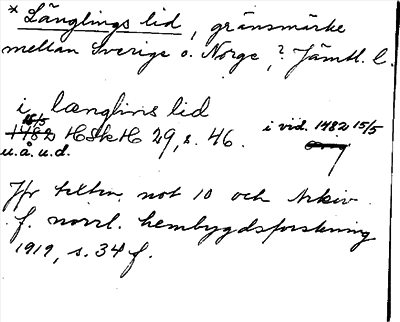 * Länglings lid, gränsmärke
mellan Sverige o. Norge, ? Jämtl. l.
i længlins lid
15/5
1482 HSkH 29, s. 46. i vid. 1482 15/5
u.å.u.d. orig
Jfr tillh. not 10 och Arkiv
f. norrl. hembygdsforskning
1919, s. 34 f.